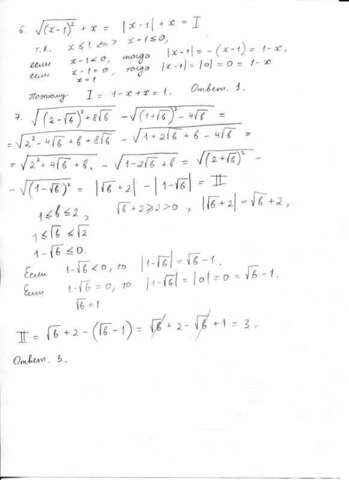 6. √(x-1)² + x = |x-1| + x = I
т.к. x ≤ 1 => x-1 ≤ 0,
если x-1<0, тогда |x-1| = -(x-1) = 1-x,
если x-1=0, тогда |x-1| = |0| = 0 = 1-x
x=1
Поэтому I = 1-x+x = 1. Ответ. 1.
7. √((2-√b)²+8√b) - √((1+√b)²-4√b) =
= √(2²-4√b+b+8√b) - √(1+2√b+b-4√b) =
= √(2²+4√b+b) - √(1-2√b+b) = √(2+√b)² -
- √(1-√b)² = |√b+2| - |1-√b| = II
1≤b≤2, √b+2≥2>0, |√b+2| = √b+2,
1≤√b≤√2
1-√b≤0.
Если 1-√b<0, то |1-√b| = √b-1.
Если 1-√b=0, то |1-√b| = |0| = 0 = √b-1.
√b=1
II = √b+2-(√b-1) = √b+2-√b+1 = 3.
Ответ. 3.